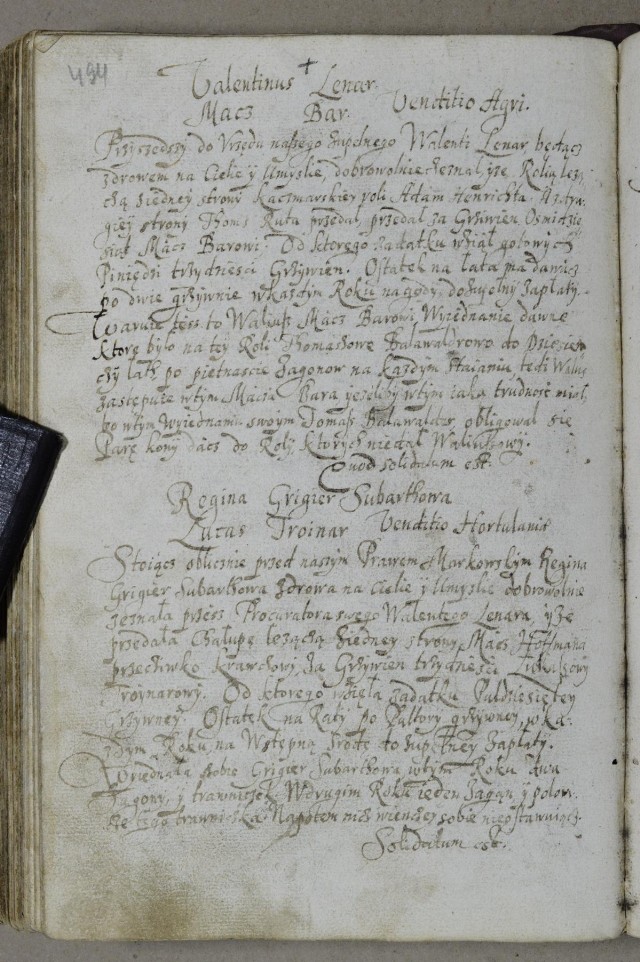 494
Valentinus + Lenar.
Macz Bar. Venditio Agri.
Przyszedszy do Vrzędu naszego zupełnego Walenti Lenar, będącz
zdrowem na Ciele ÿ Umyslie, dobrowolnie zeznał, ÿze Rolią leż,
czą ziedney strony Kaczmarskiey roli Adam Henrichta. A z dru,
giey strony Thoms Ruta przedal, przedal za Grzÿwien Osmidzie
siąt Macz Barowi, Od ktorego zadatku wział gotowÿch
Piniędzi trzydziesci Grzÿwien. Ostatek na lata ma dawacz
po dwie grzÿwnie w kazdym Roku na gody, do zupelnÿ zapłatÿ.
Waruie tesz to Walenty Macz Barowi, Wyiednanie dawne
ktore było na tey Roli Thomaszowe Balawaldrowo do Dziesię,
czÿ lath po pietnascie zagonow na każdym staianiu, tedi
zastępuie wtÿm Macia Bara ÿezeliby wtÿm iaką trudnosc miał,
bo wtÿm wyiednaniu swoÿm Tomasz Balawalder, obligował się
Parę konÿ dacz do Rolÿ, ktorych niedal
Quod solidatum est.
Regina Grigier Subartkowa
Lucas Troinar Venditio Hortulania
Stoiącz oblicznie przed naszÿm Prawem Markowskÿm Regina
Grigier Subartkowa zdrowa na Ciele ÿ Umyslie dobrowolnie
zeznała przesz Procuratora swego Walentego Lenara, ÿze
przedała Chałupę leżączą ziedney strony Macz Hoffmana
przeciwko krawczowi, za Grzÿwien trzÿdziesci Lukaszowÿ
Troynarowÿ. Od ktorego wzięła zadatku Puldziesiętey
Grzÿwney. Ostatek na Ratÿ po Pułtorÿ grzÿwney, w ka,
żdÿm Roku, na Wstępną srodę do zupełney zapłatÿ.
Wyiednała sobie Grigier Subartkowa wtÿm Roku dwa
zagonÿ, ÿ trawniczek, W drugim Roku ieden zagon ÿ
trawniczka. Napotem nicz wienczeÿ sobie niepostawuiącz.
Solidatum est.